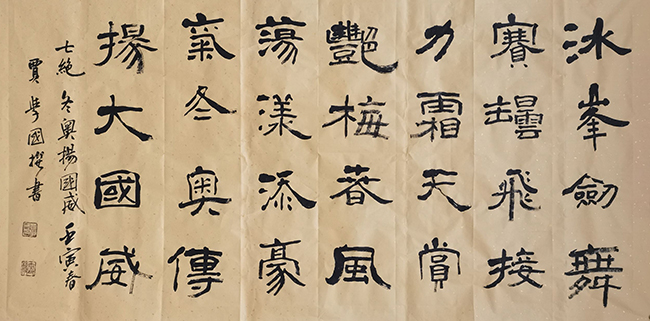 冰峯劍舞
賽罎飛接
力霜天賞
豔梅春風
蕩漾添豪
氣冬奧傳
揚大國威
七絕 冬奧揚國威 壬寅春
賈學國撰書